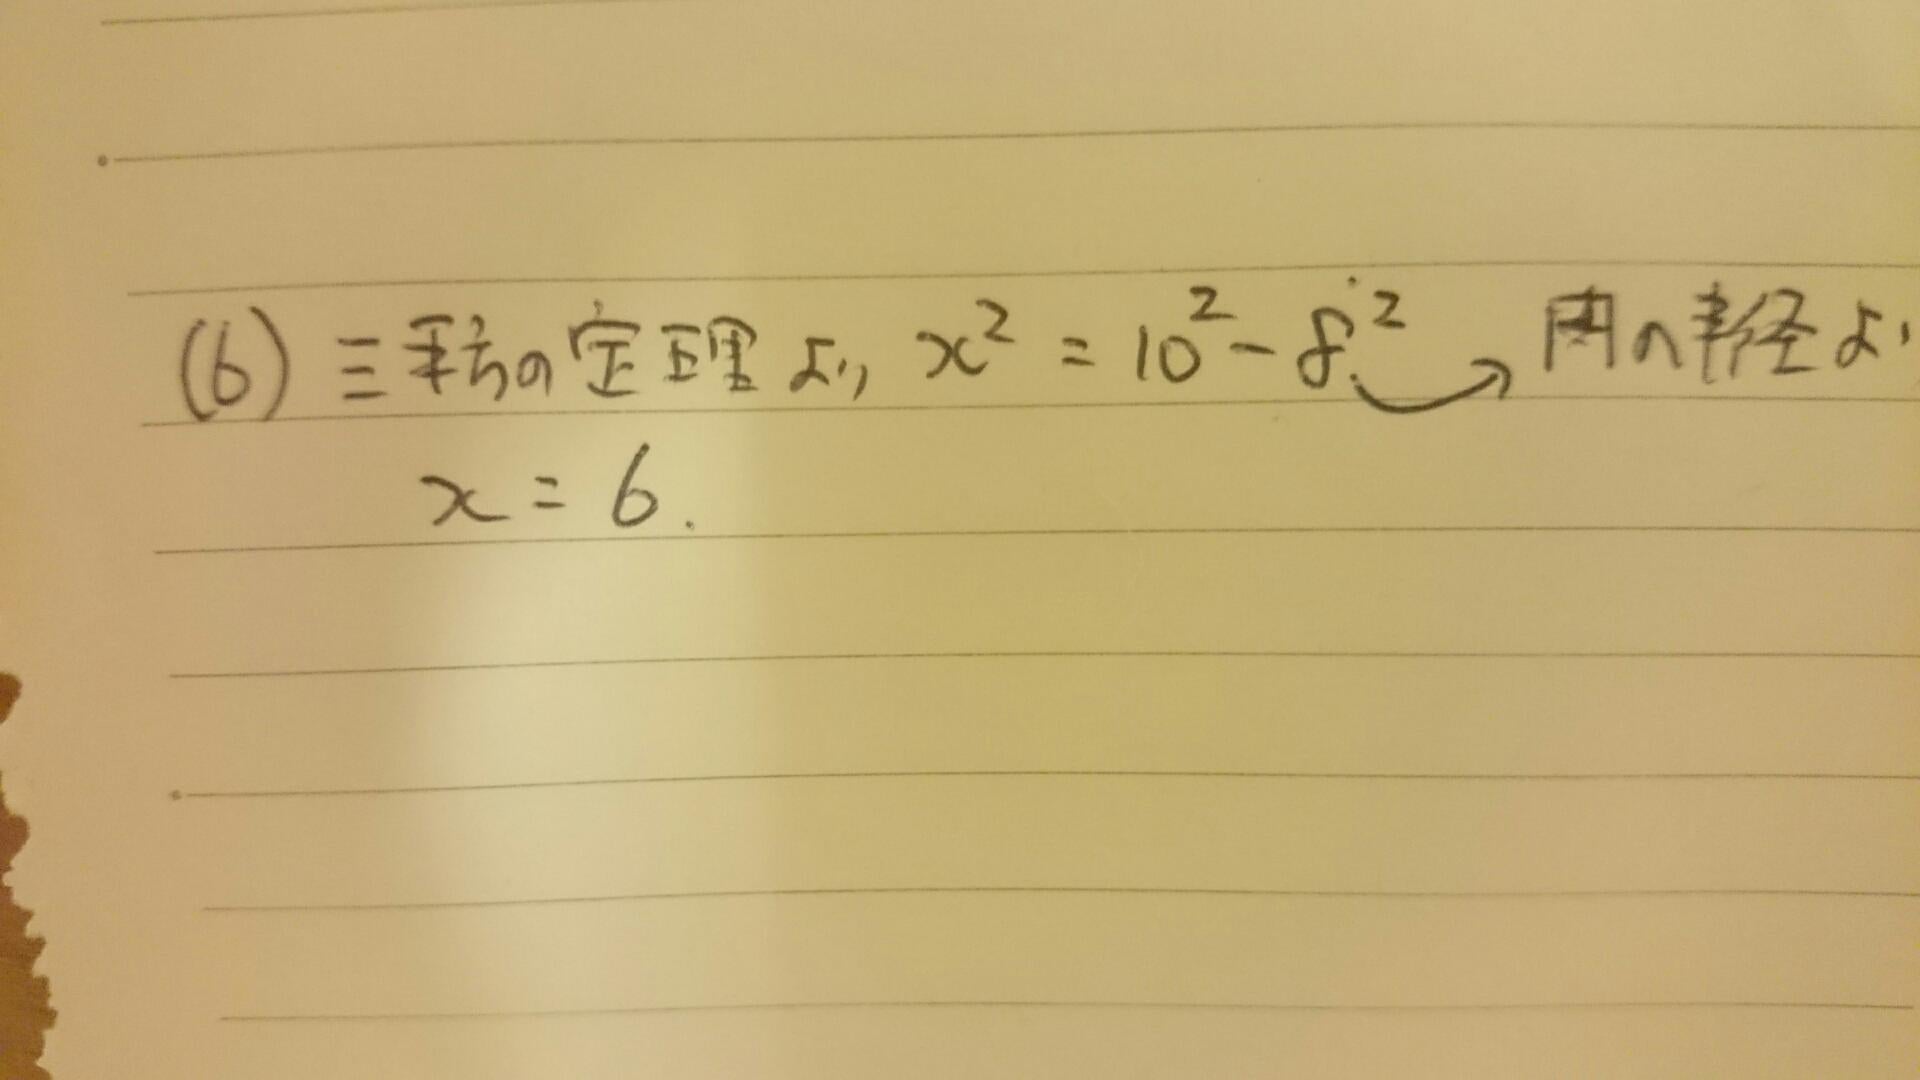 (6) 三平方の定理より x² = 10² - 8² → 円の半径よ
x = 6.